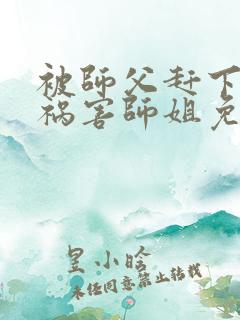 被師父赶下
祸害師姐免
皇小啥
未经同意禁止转载